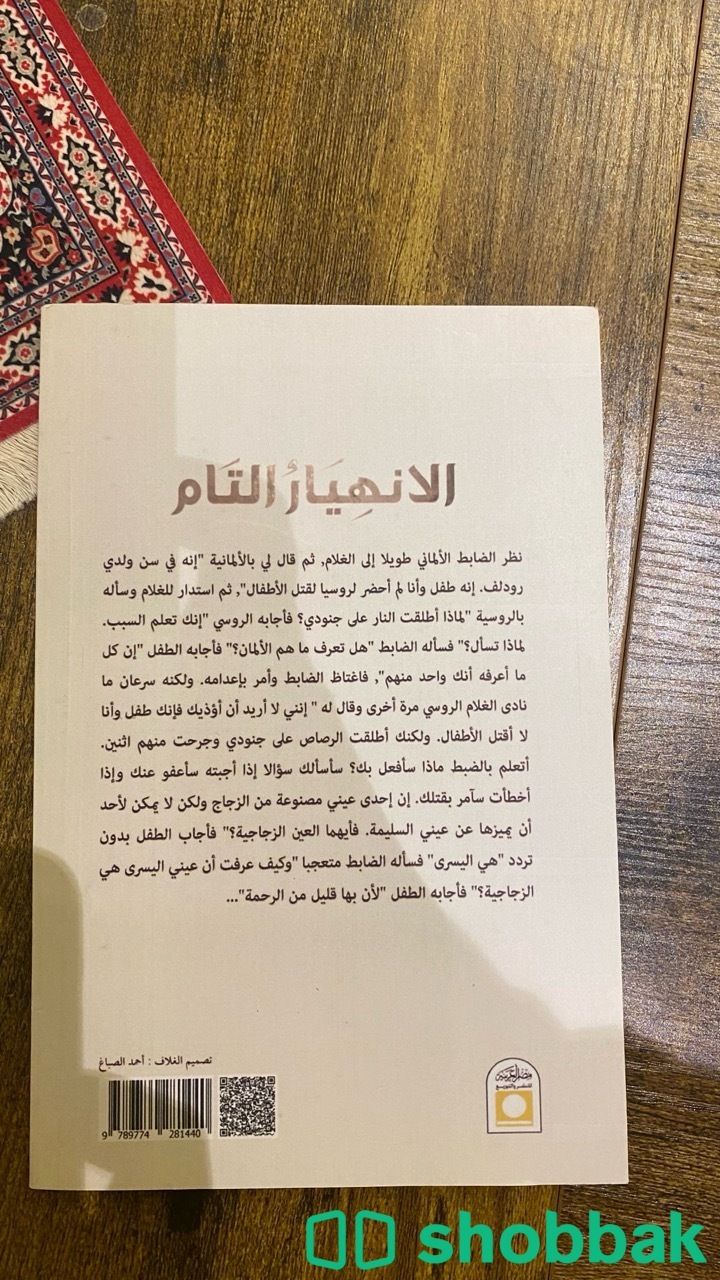 الانهِيَارُ التَام
نظر الضابط الألماني طويلا إلى الغلام, ثم قال لي بالألمانية "إنه في سن ولدي
رودلف. إنه طفل وأنا لم أحضر لروسيا لقتل الأطفال", ثم استدار للغلام وسأله
بالروسية "لماذا أطلقت النار على جنودي؟ فأجابه الروسي "إنك تعلم السبب.
لماذا تسأل؟" فسأله الضابط "هل تعرف ما هم الألمان؟" فأجابه الطفل "إن كل
ما أعرفه أنك واحد منهم", فاغتاظ الضابط وأمر بإعدامه. ولكنه سرعان ما
نادى الغلام الروسي مرة أخرى وقال له " إنني لا أريد أن أؤذيك فإنك طفل وأنا
لا أقتل الأطفال. ولكنك أطلقت الرصاص على جنودي وجرحت منهم اثنين.
أتعلم بالضبط ماذا سأفعل بك؟ سأسألك سؤالا إذا أجبته سأعفو عنك وإذا
أخطأت سآمر بقتلك. إن إحدى عيني مصنوعة من الزجاج ولكن لا يمكن لأحد
أن يميزها عن عيني السليمة. فأيهما العين الزجاجية؟" فأجاب الطفل بدون
تردد "هي اليسرى" فسأله الضابط متعجبا "وكيف عرفت أن عيني اليسرى هي
الزجاجية؟" فأجابه الطفل "لأن بها قليل من الرحمة"...
تصميم الغلاف : أحمد الصباغ
9 789774 281440
مصر العربية
للنشر والتوزيع
shobbak